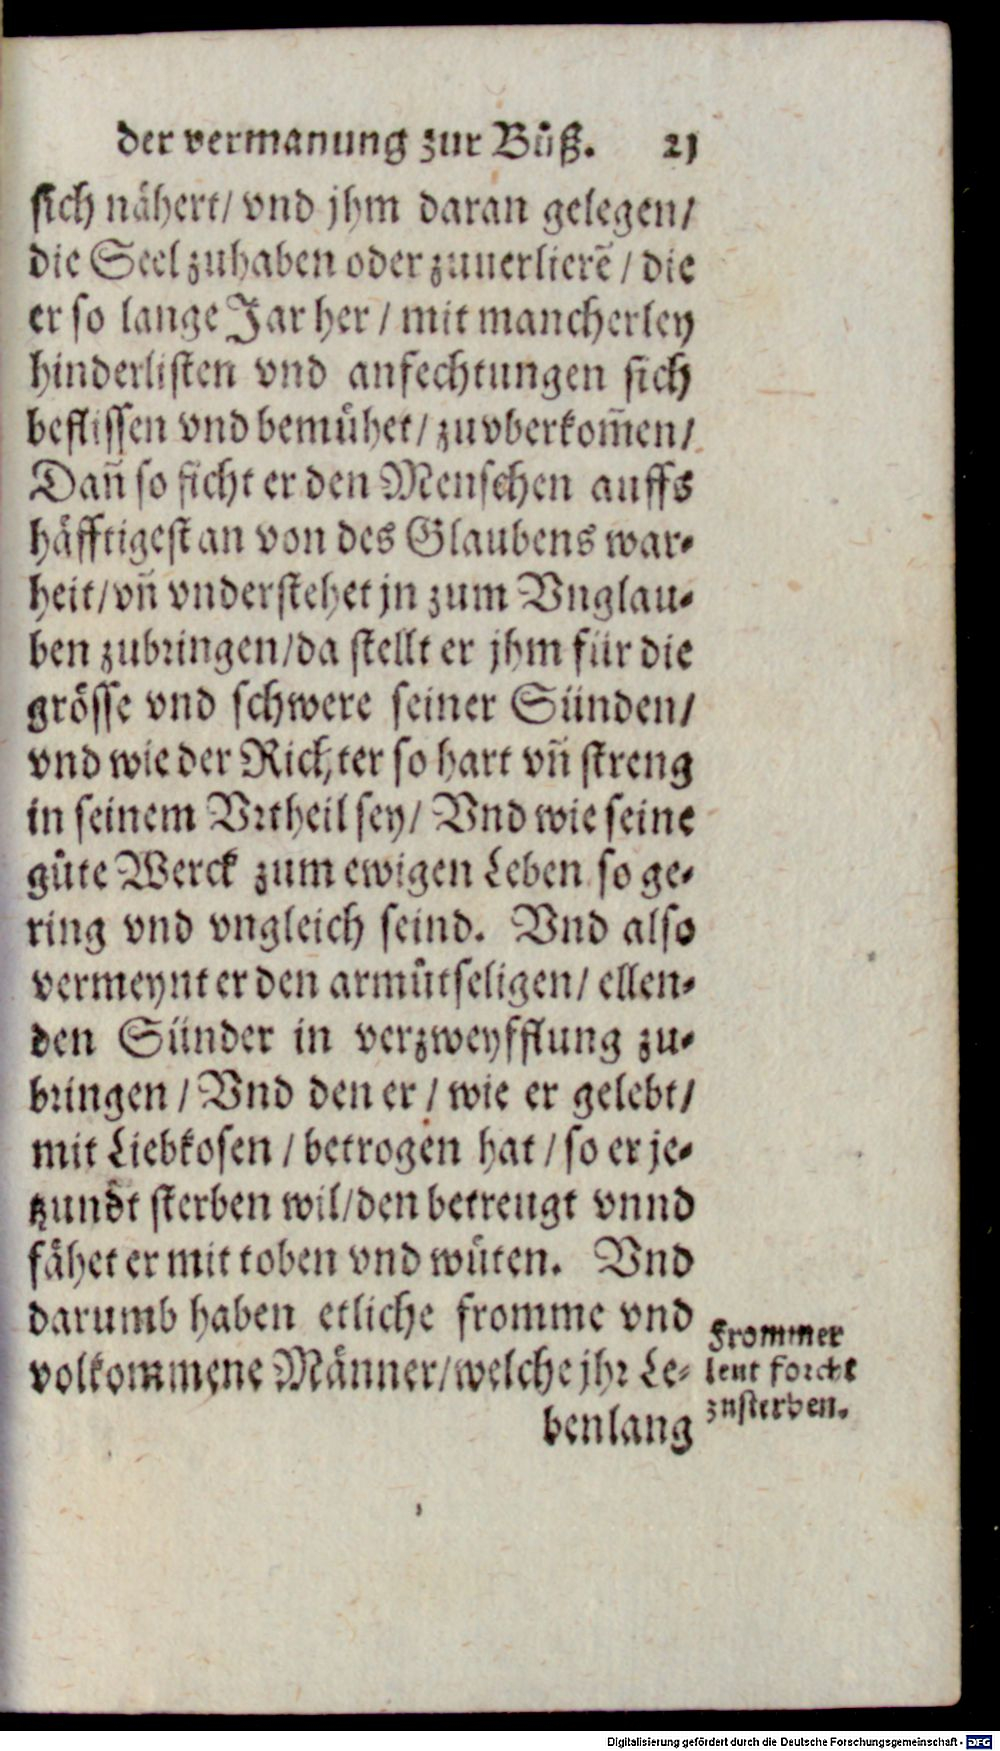 der vermanung zur Bůß. 21
sich nähert/ vnd jhm daran gelegen/
die Seel zuhaben oder zuuerlierē / die
er so lange Jar her / mit mancherley
hinderlisten vnd anfechtungen sich
beflissen vnd bemühet/ zuvberkom̃en/
Dañ so ficht er den Menschen auffs
häfftigest an von des Glaubens war-
heit/ vñ vnderstehet jn zum Vnglau-
ben zubringen/ da stellt er jhm für die
grösse vnd schwere seiner Sünden/
vnd wie der Richter so hart vñ streng
in seinem Vrtheil sey/ Vnd wie seine
gůte Werck zum ewigen Leben so ge-
ring vnd vngleich seind. Vnd also
vermeynt er den armůtseligen/ ellen-
den Sünder in verzweyfflung zu-
bringen / Vnd den er / wie er gelebt/
mit Liebkosen / betrogen hat / so er je-
tzundt sterben wil/ den betreugt vnnd
fähet er mit toben vnd wüten. Vnd
darumb haben etliche fromme vnd
volkommene Männer/ welche jhr Le-
benlang
Frommer
leut forcht
zusterben.
Digitalisierung gefördert durch die Deutsche Forschungsgemeinschaft - DFG